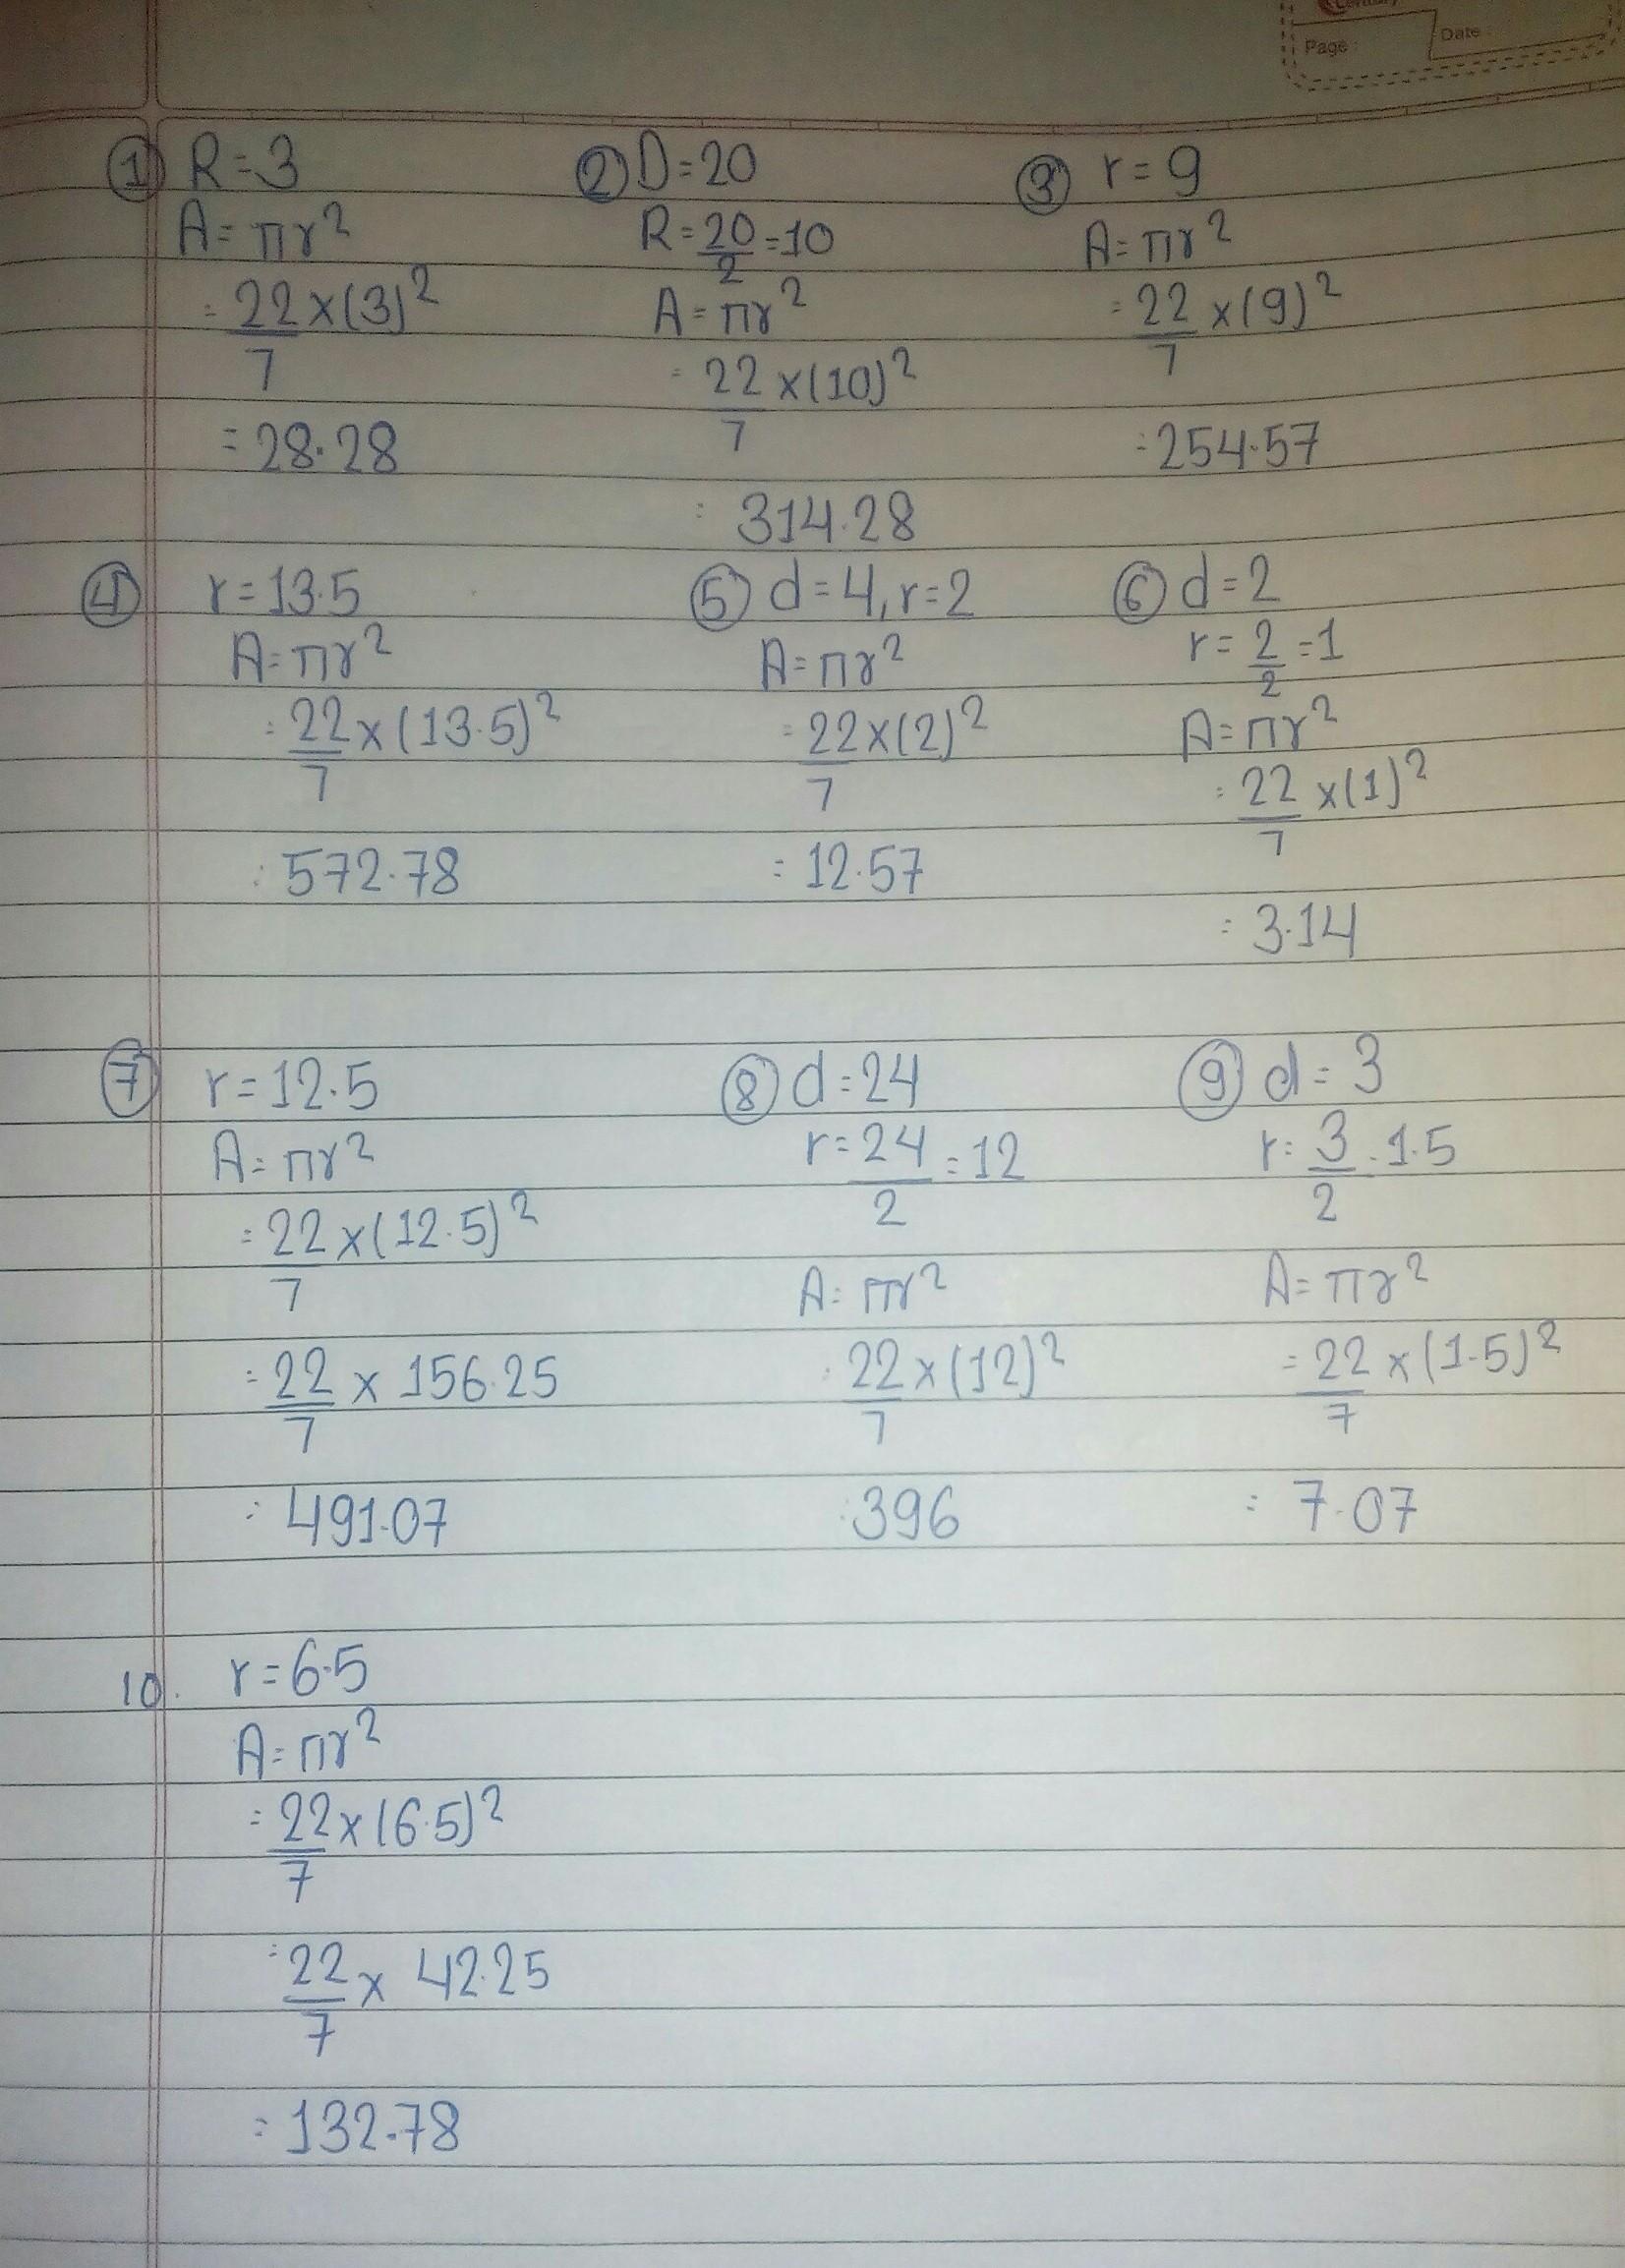 Century
Page :
Date :
① R=3
A=πr²
= 22/7 ×(3)²
= 28.28
② D=20
R=20/2=10
A=πr²
= 22/7 ×(10)²
= 314.28
③ r=9
A=πr²
= 22/7 ×(9)²
= 254.57
④ r=13.5
A=πr²
= 22/7 ×(13.5)²
= 572.78
⑤ d=4, r=2
A=πr²
= 22/7 ×(2)²
= 12.57
⑥ d=2
r=2/2=1
A=πr²
= 22/7 ×(1)²
= 3.14
⑦ r=12.5
A=πr²
= 22/7 ×(12.5)²
= 22/7 × 156.25
= 491.07
⑧ d=24
r=24/2=12
A=πr²
= 22/7 ×(12)²
= 396
⑨ d=3
r=3/2=1.5
A=πr²
= 22/7 ×(1.5)²
= 7.07
10. r=6.5
A=πr²
= 22/7 ×(6.5)²
= 22/7 × 42.25
= 132.78